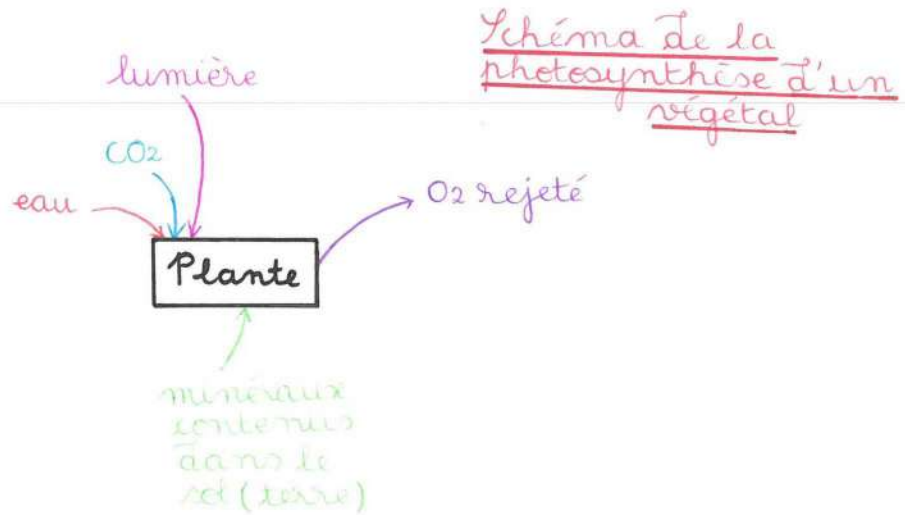 Schéma de la
photosynthèse d'un
végétal
lumière
CO2
eau
O2 rejeté
Plante
minéraux
contenus
dans le
sol (terre)